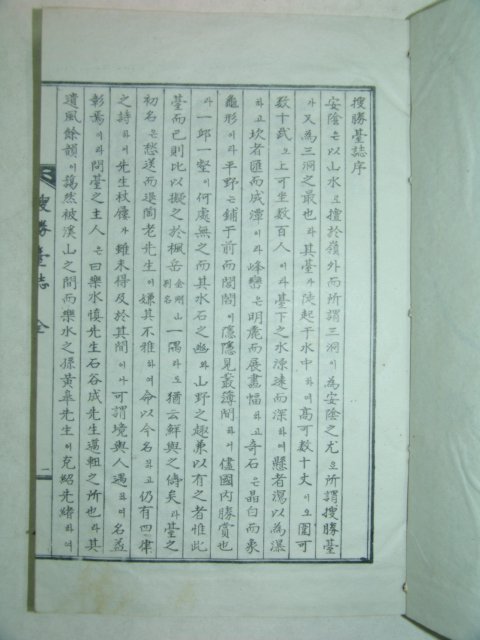 搜勝臺誌序
安陰은以山水로擅於嶺外而所謂三洞이爲安陰之尤오所謂搜勝臺
가又爲三洞之最也라其臺가陡起于水中하여高可數十丈이오圍可
數十武오上可坐數百人이라臺下之水漂速而深하여懸者瀉以爲瀑
하고坎者匯而成潭이라峰巒은明麗而展畵幅하고奇石은晶白而象
龜形이라平野는鋪于前而閭閻이隱隱見叢薄間하니儘國內勝賞也
라一邱一壑이何處無之而其水石之幽와山野之趣兼以有之者惟此
臺而已則比以擬之於楓岳金剛山別名一隅라도猶云鮮與之儔矣라臺之
初名은愁送而退陶老先生이嫌其不雅하여命以今名하고仍有四律
之詩하니先生杖屨가雖未得及於其間이나可謂境與人遇하여名益
彰焉이라問臺之主人은曰樂水愼先生石谷成先生薖軸之所也라其
遺風餘韻이藹然被溪山之間而樂水之孫黃皐先生이克紹先緖하여
搜勝臺誌 全
一